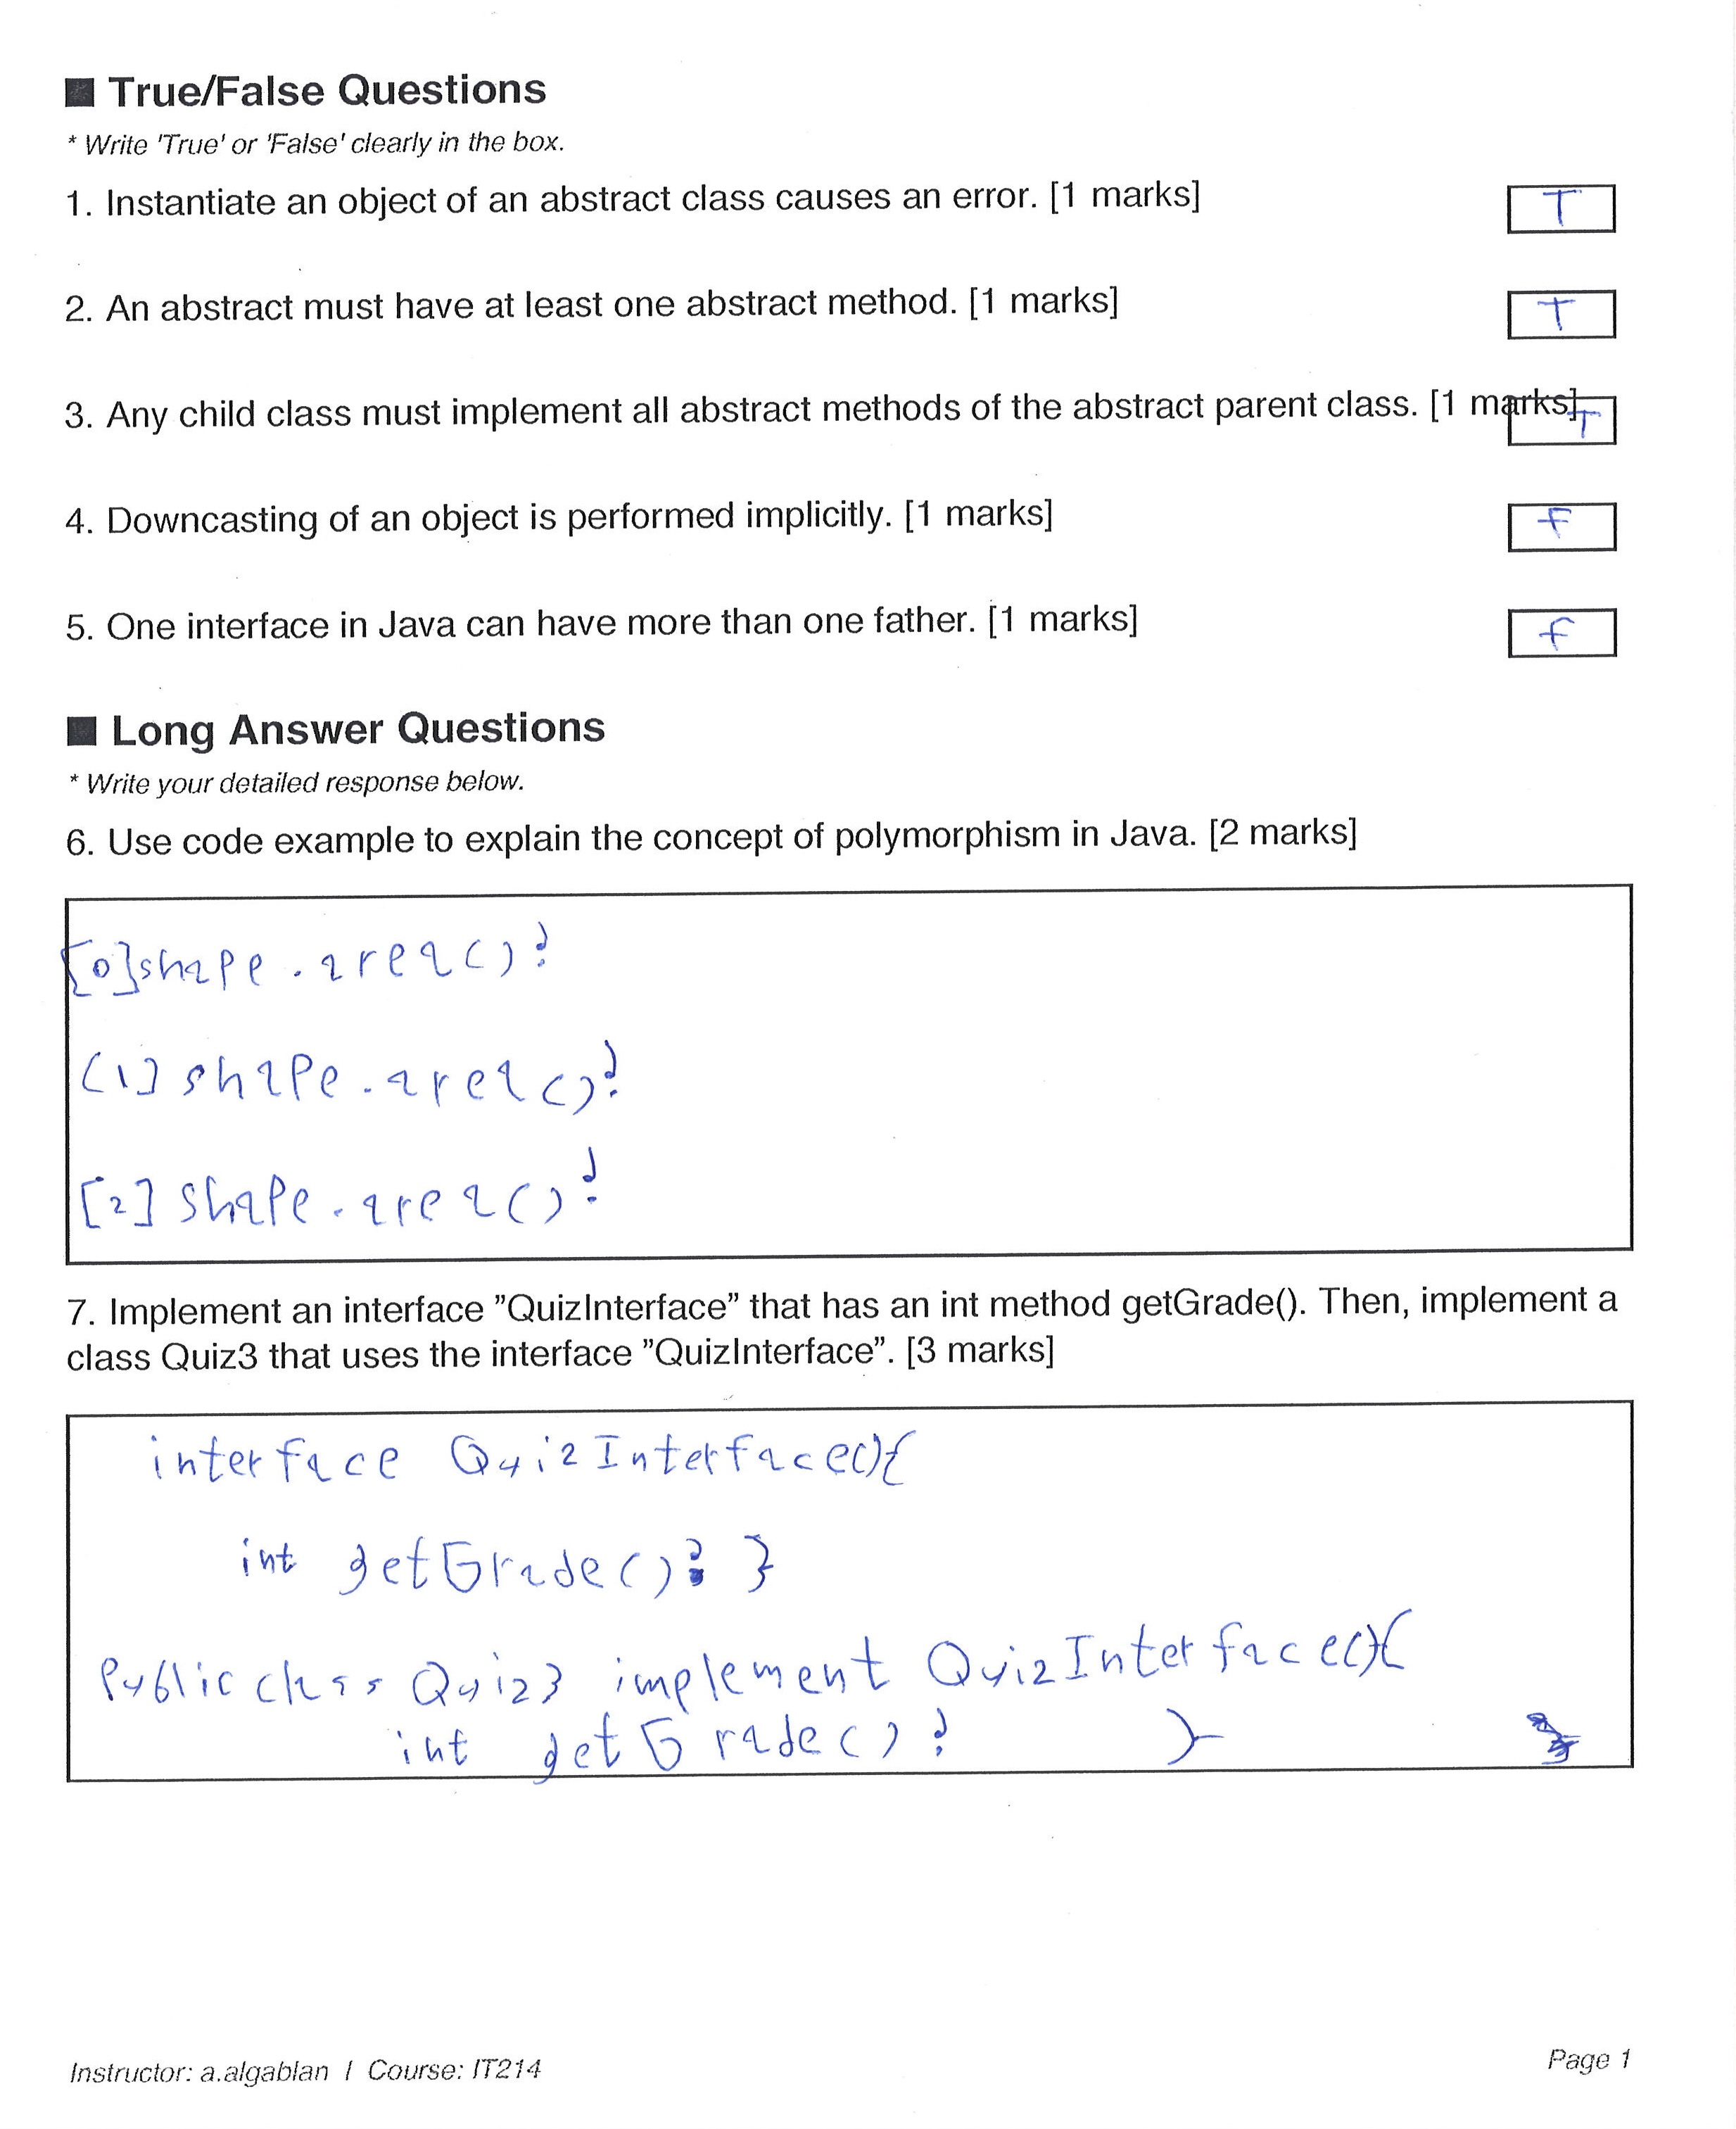 ■ True/False Questions
* Write 'True' or 'False' clearly in the box.
1. Instantiate an object of an abstract class causes an error. [1 marks] T
2. An abstract must have at least one abstract method. [1 marks] T
3. Any child class must implement all abstract methods of the abstract parent class. [1 marks] T
4. Downcasting of an object is performed implicitly. [1 marks] F
5. One interface in Java can have more than one father. [1 marks] F
■ Long Answer Questions
* Write your detailed response below.
6. Use code example to explain the concept of polymorphism in Java. [2 marks]
[0]shape.area();
[1] shape.area();
[2] shape.area();
7. Implement an interface ”QuizInterface” that has an int method getGrade(). Then, implement a
class Quiz3 that uses the interface ”QuizInterface”. [3 marks]
interface QuizInterface(){
int getGrade(); }
Public class Quiz3 implement QuizInterface(){
int getGrade(); }
Instructor: a.algablan / Course: IT214
Page 1